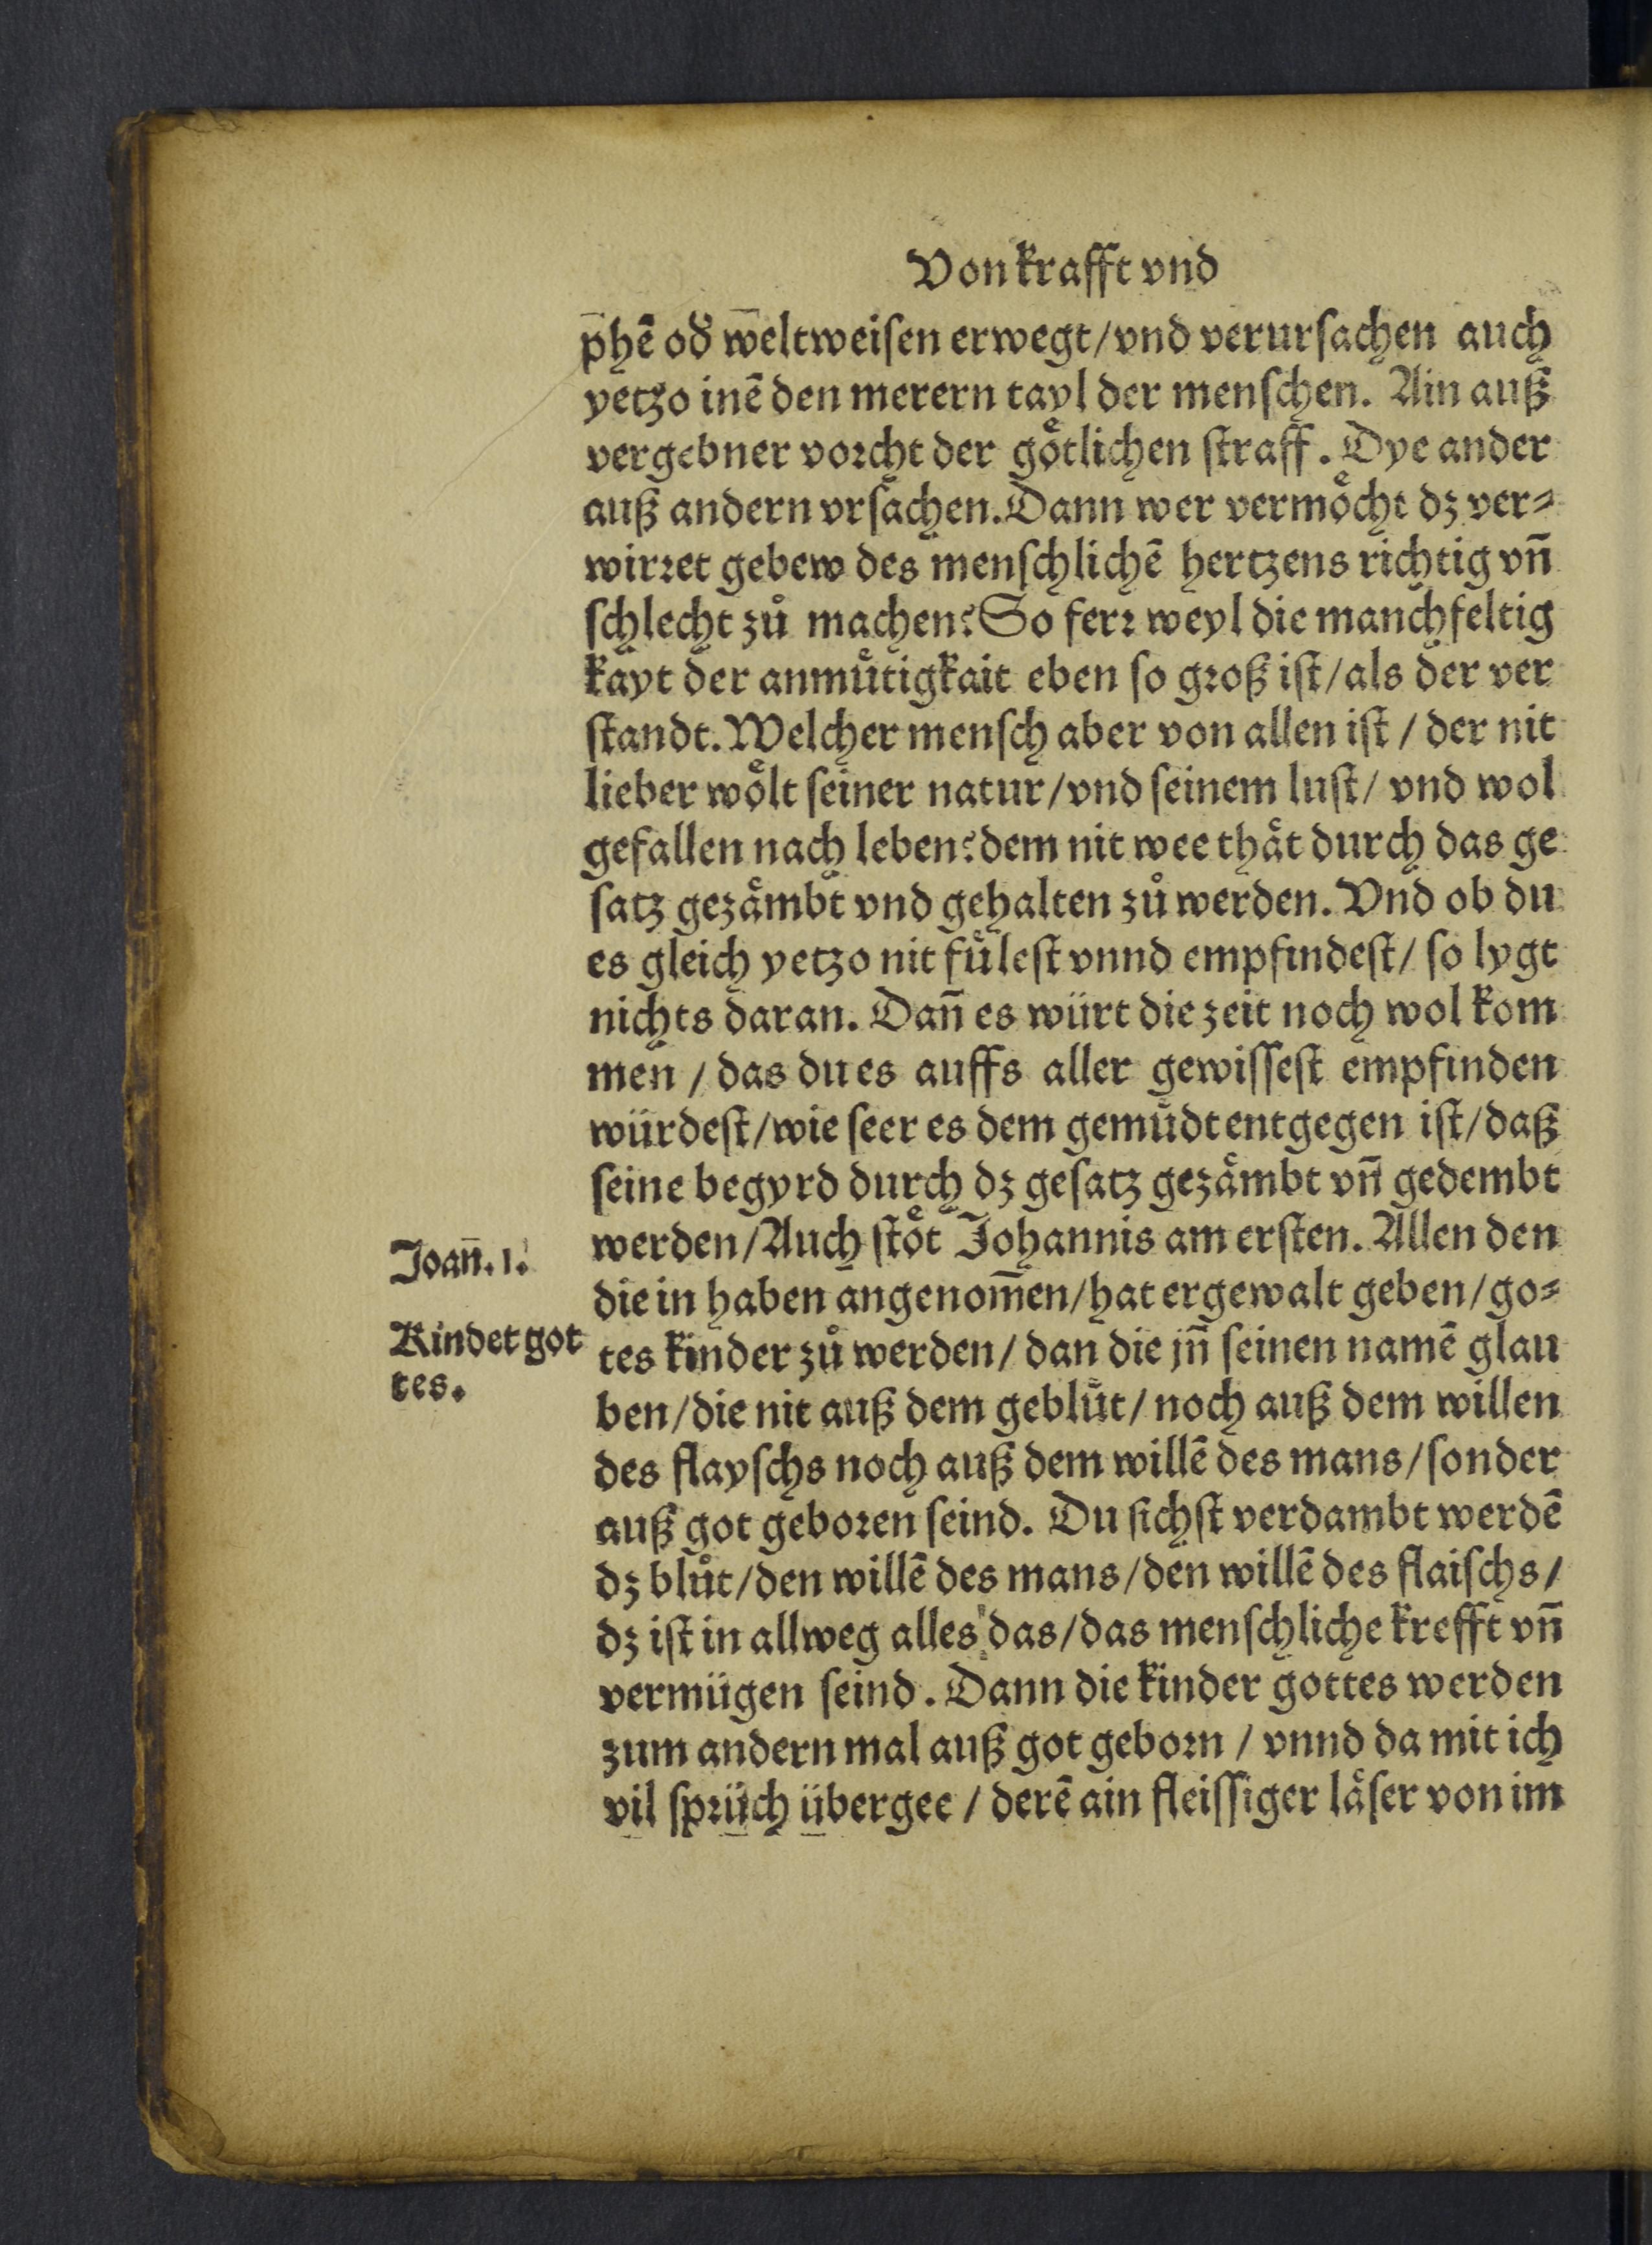 Von krafft vnd
p̄hē od̕ w̄eltweiſen erwegt/vnd verurſachen auch
yetzo inē den merern tayl der menſchen. Ain auß
vergebner voꝛcht der goͤtlichen ſtraff. Dye ander
auß andern vrſachen. Dann wer vermoͤcht dz ver⸗
wirꝛet gebew des menſchlichē hertzens richtig vn̄
ſchlecht zů machen? So ferꝛ weyl die manchfeltig
kayt der anmuͤtigkait eben ſo gꝛoß iſt/als der ver
ſtandt. Welcher menſch aber von allen iſt / der nit
lieber woͤlt ſeiner natur/vnd ſeinem luſt/ vnd wol
gefallen nach leben? dem nit wee thaͤt durch das ge
ſatz gezaͤmbt vnd gehalten zů werden. Vnd ob du
es gleich yetzo nit fuͤleſt vnnd empfindeſt/ ſo lygt
nichts daran. Dan̄ es würt die zeit noch wol kom
men / das du es auffs aller gewiſſeſt empfinden
würdeſt/wie ſeer es dem gemuͤdt entgegen iſt/daß
ſeine begyrd durch dz geſatz gezaͤmbt vn̄ gedembt
werden/Auch ſtoͤt Johannis am erſten. Allen den
die in haben angenom̄en/hat er gewalt geben/go⸗
tes kinder zů werden/ dan die jn̄ ſeinen namē glau
ben/die nit auß dem gebluͤt/ noch auß dem willen
des flayſchs noch auß dem willē des mans/ſonder
auß got geboꝛen ſeind. Du ſichſt verdambt werdē
dz blůt/den willē des mans/den willē des flaiſchs/
dz iſt in allweg alles das/das menſchliche krefft vn̄
vermügen ſeind. Dann die kinder gottes werden
zum andern mal auß got geboꝛn / vnnd da mit ich
vil ſpꝛüch übergee / derē ain fleiſſiger laͤſer von im
Joan̄. 1.
Kindet got
tes.